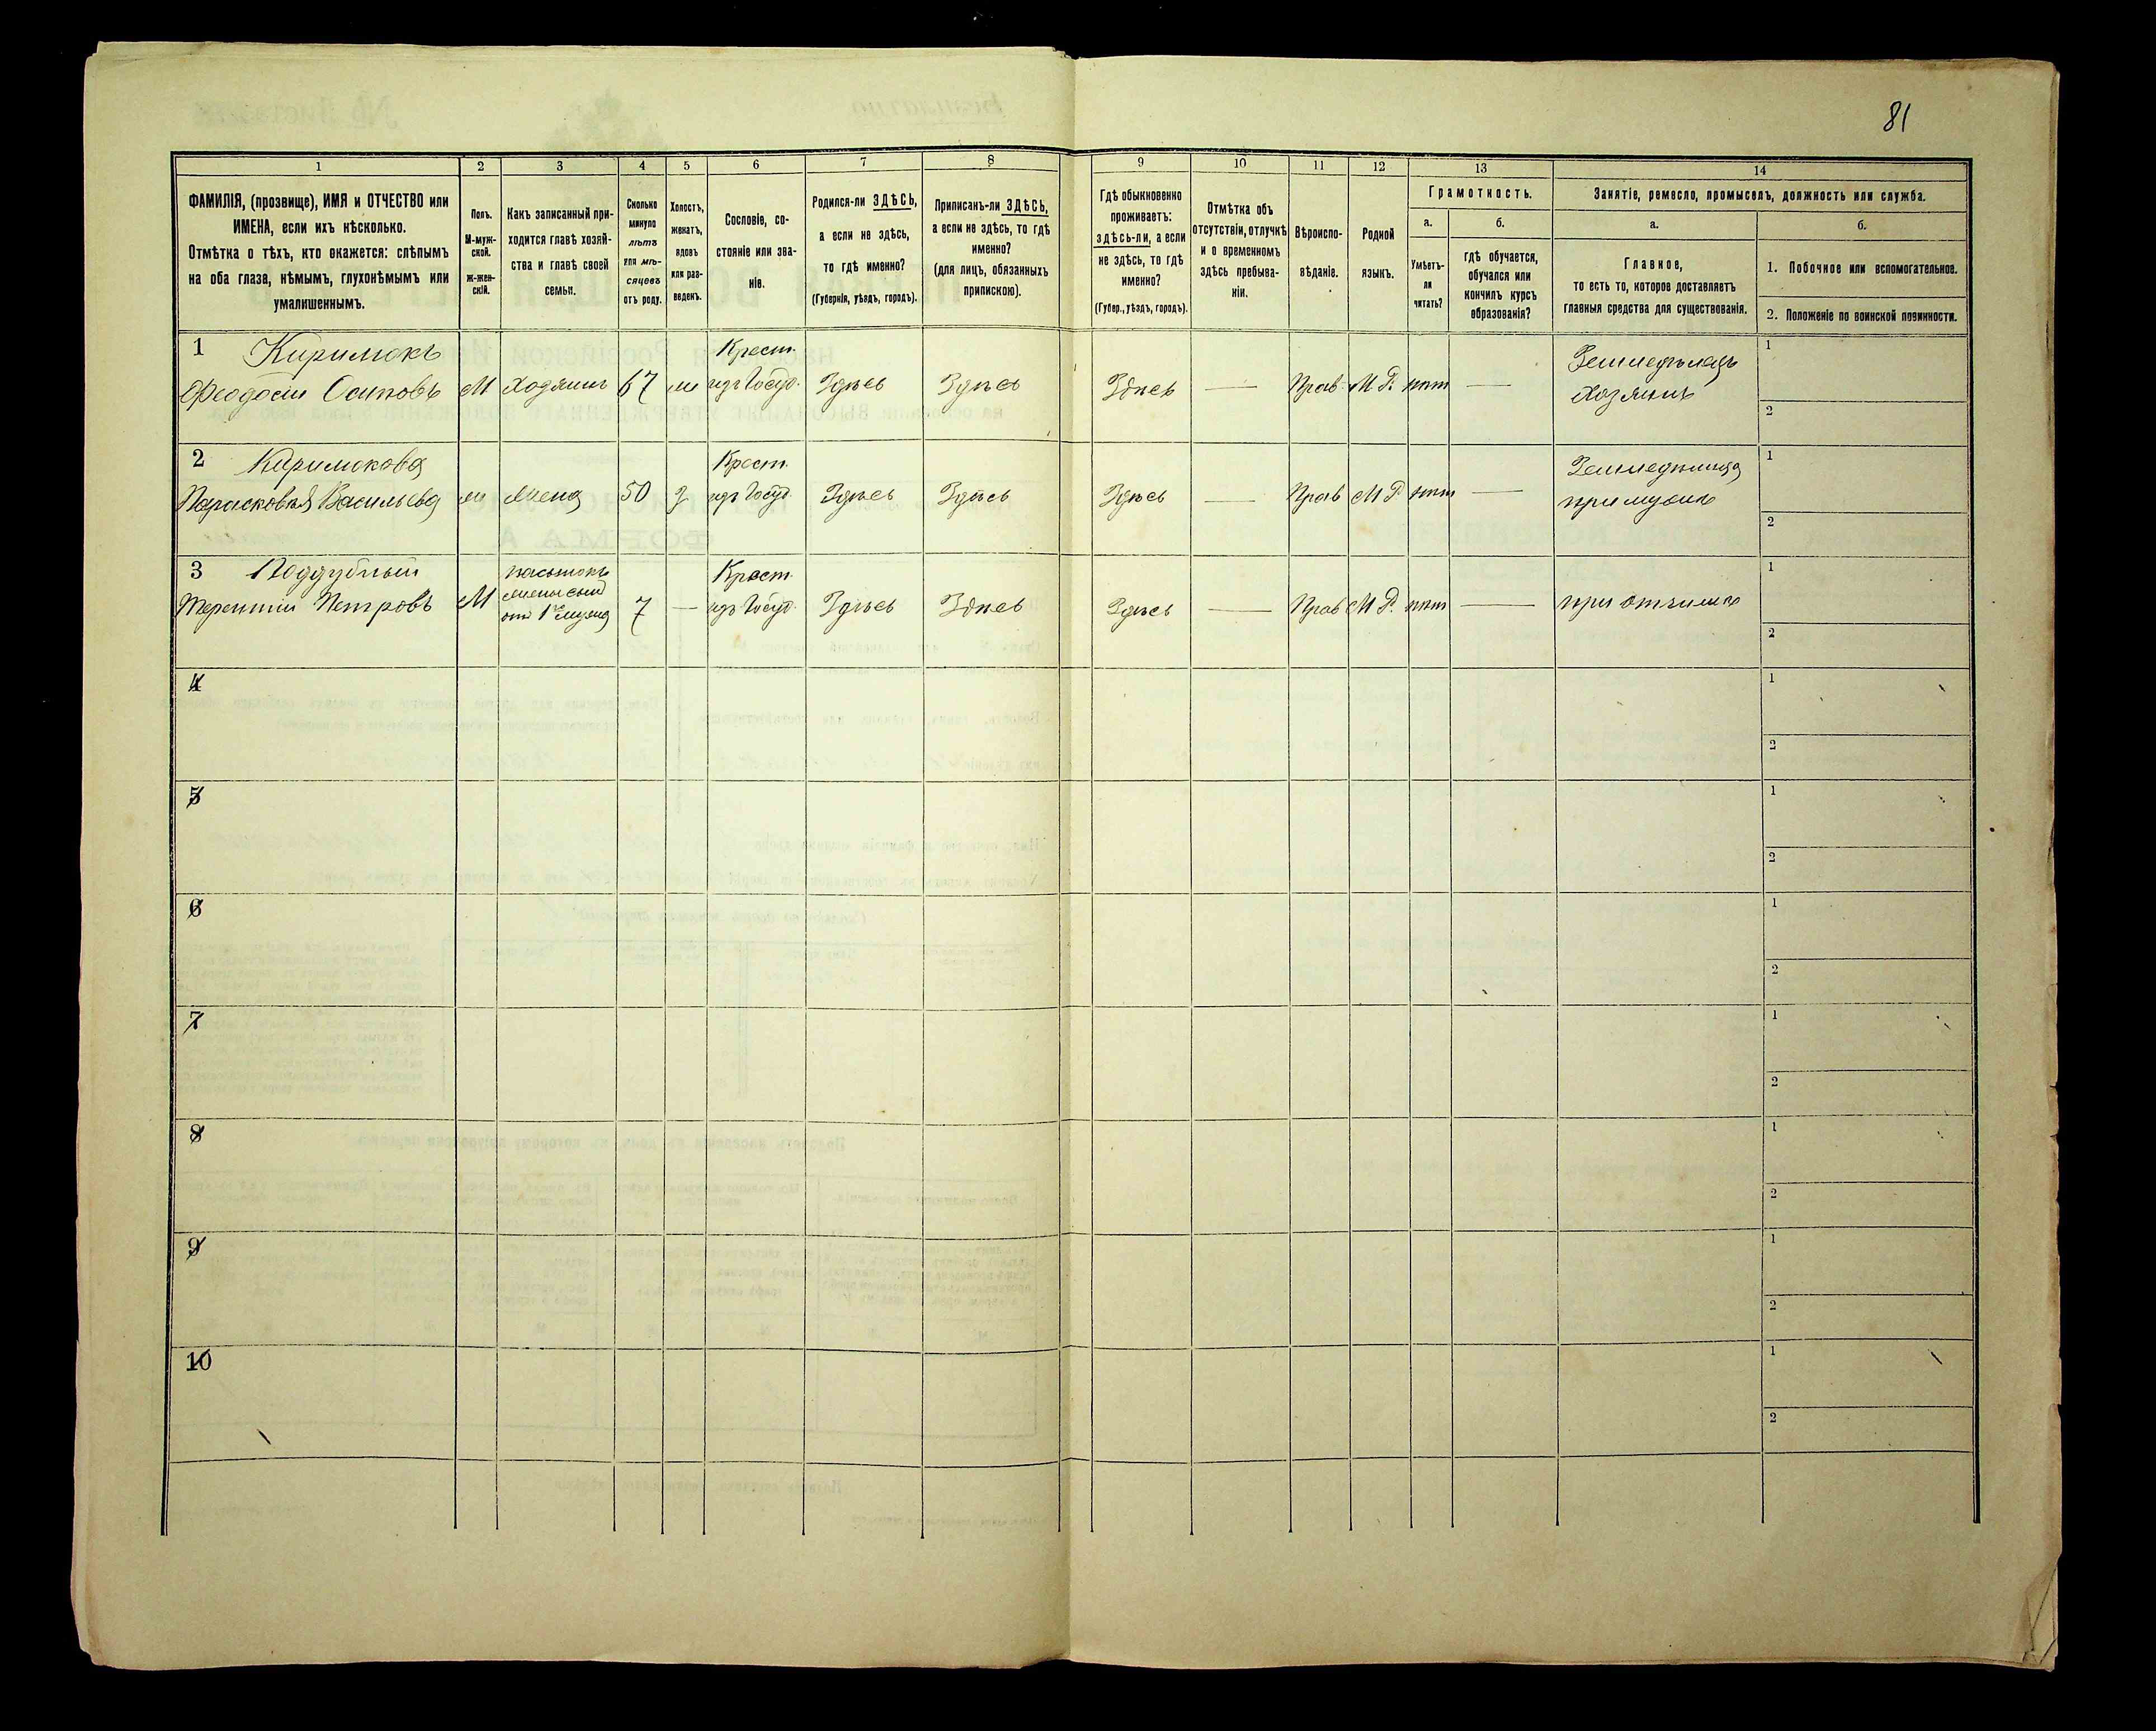 81
1 2 3 4 5 6 7 8 9 10 11 12 13 14
ФАМИЛІЯ, (прозвище), ИМЯ и ОТЧЕСТВО или
ИМЕНА, если ихъ нѣсколько.
Отмѣтка о тѣхъ, кто окажется: слѣпымъ
на оба глаза, нѣмымъ, глухонѣмымъ или
умалишеннымъ.
Полъ.
М-муж-
ской.
Ж-жен-
скій.
Какъ записанный при-
ходится главѣ хозяй-
ства и главѣ своей
семьи.
Сколько
минуло
лѣтъ
или мѣ-
сяцевъ
отъ роду.
Холостъ,
женатъ,
вдовъ
или раз-
веденъ.
Сословіе, со-
стояніе или зва-
ніе.
Родился-ли ЗДѢСЬ,
а если не здѣсь,
то гдѣ именно?
(Губернія, уѣздъ, городъ).
Приписанъ-ли ЗДѢСЬ,
а если не здѣсь, то гдѣ
именно?
(для лицъ, обязанныхъ
припискою).
Гдѣ обыкновенно
проживаетъ:
здѣсь-ли, а если
не здѣсь, то гдѣ
именно?
(Губер., уѣздъ, городъ).
Отмѣтка объ
отсутствіи, отлучкѣ
и о временномъ
здѣсь пребыва-
ніи.
Вѣроиспо-
вѣданіе.
Родной
языкъ.
Грамотность.
а.
Умѣетъ-
ли
читать?
б.
гдѣ обучается,
обучался или
кончилъ курсъ
образованія?
Занятіе, ремесло, промыселъ, должность или служба.
а.
Главное,
то есть то, которое доставляетъ
главныя средства для существованія.
б.
1. Побочное или вспомогательное.
2. Положеніе по воинской повинности.
1 Кирилюкъ Крест. Земледѣлецъ 1
Феодосій Осиповъ М Хозяинъ 67 изъ Госуд. Здѣсь Здѣсь Здѣсь — Прав М Р. нѣт — Хозяинъ 2
2 Кирилюкова Крест. 1
Парасковья Васильева ж Жена 50 2 изъ Госуд. Здѣсь Здѣсь Здѣсь — Прав М Р. нѣт — при мужѣ 2
3 Поддубный пасынокъ Крест. 1
Терентій Петровъ М жены сынъ 7 — изъ Госуд. Здѣсь Здѣсь Здѣсь — Прав М Р. нѣт — при отчимѣ 2
отъ 1го мужа
4 1
2
5 1
2
6 1
2
7 1
2
8 1
2
9 1
2
10 1
2